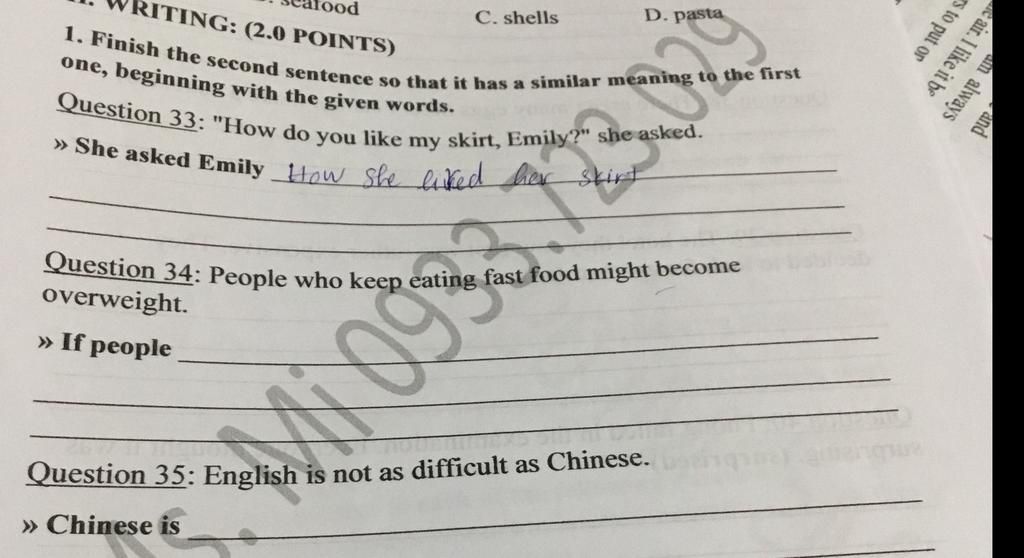 . seafood
C. shells
D. pasta
II. WRITING: (2.0 POINTS)
1. Finish the second sentence so that it has a similar meaning to the first
one, beginning with the given words.
Question 33: "How do you like my skirt, Emily?" she asked.
» She asked Emily How she liked her skirt
Question 34: People who keep eating fast food might become
overweight.
» If people
Question 35: English is not as difficult as Chinese.
» Chinese is
Ms. Mi 0933.723.029
e air. I like it be
s to put on
am always
and